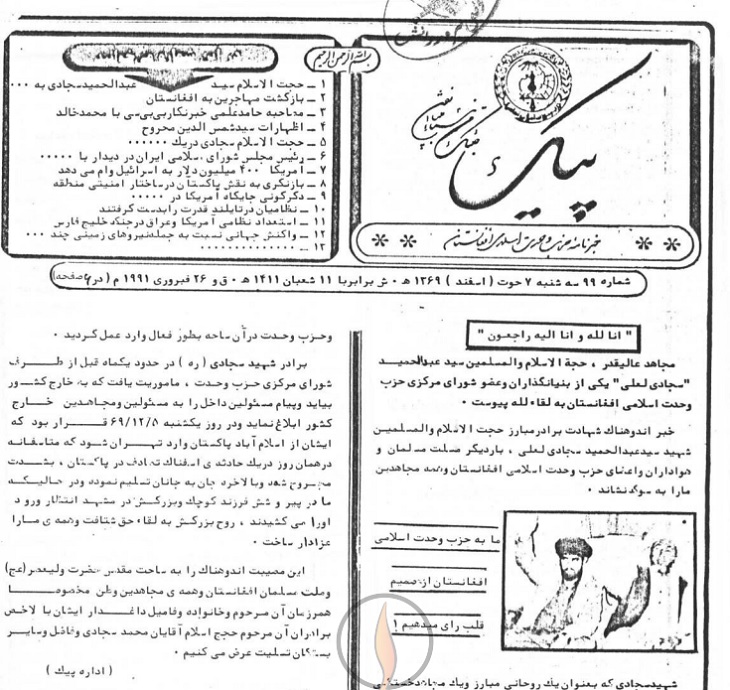 بسم الله الرحمن الرحیم
پیک
خبرنامه حزب وحدت اسلامی افغانستان
۱ ـ حجت الاسلام سید عبدالحمید سجادی به ۰۰۰
۲ ـ بازگشت مهاجرین به افغانستان
۳ ـ مصاحبه حامد علمی خبرنگار بی‌بی‌سی با محمد خالد
۴ ـ اظهارات سید شمس الدین مجروح
۵ ـ حجت الاسلام سجادی دریک ۰۰۰۰۰۰
۶ ـ رئیس مجلس شورای اسلامی ایران در دیدار با ۰۰۰۰۰
۷ ـ آمریکا ۴۰۰ میلیون دلار به اسرائیل وام می دهد
۸ ـ بازنگری به نقش پاکستان در ساختار امنیتی منطقه
۹ ـ دگرگونی جایگاه آمریکا در ۰۰۰۰۰
۱۰ ـ نظامیان در تایلند قدرت را بدست گرفتند
۱۱ ـ استعداد نظامی آمریکا و عراق در جنگ خلیج فارس
۱۲ ـ واکنش جهانی نسبت به حمله نیروهای زمینی چند ۰۰۰
۱۳ ـ ۰۰۰۰۰۰۰۰۰۰۰۰۰۰
شماره ۹۹ سه شنبه ۷ حوت ( اسفند ) ۱۳۶۹ ه ۰ ش برابر با ۱۱ شعبان ۱۴۱۱ ه ۰ ق و ۲۶ فبروری ۱۹۹۱ م ( در صفحه)
" انا لله و انا الیه راجعون "
مجاهد عالیقدر ، حجة الاسلام والمسلمین سید عبدالحمیـد
"سجادی لعلی" یکی از بنیانگذاران وعضو شورای مرکزی حزب
وحدت اسلامی افغانستان به لقاء لله پیوست ۰
خبر اندوهناک شهادت برادرمبارز حجت الاسلام والمسلمین
شهید سیدعبدالحمید سجادی لعلی ، باردیگر ملت مسلمان و
هواداران واعضای حزب وحدت اسلامی افغانستان وهمه مجاهدین
مارا به سوگ نشاند ۰
ما به حزب وحدت اسلامی
افغانستان از صمیم
قلب رای میدهیم !
شهیدسجادی که بعنوان یك روحانی مبارز ویك مجاهدخستگی
وحزب وحدت در آن ساحه بطور فعال وارد عمل گردید ۰
برادر شهید سجادی ( ره ) در حدود یکماه قبل از طــرف
شورای مرکزی حزب وحدت ، ماموریت یافت که به خارج کشـور
بیاید وپیام مسئولین داخل را به مسئولین ومجاهدین خـارج
کشور ابلاغ نماید ودر روز یکشنبه ۶۹/۱۲/۵ قـرار بود که
ایشان از اسلام آباد پاکستان وارد تهـران شـود که متاسفانـه
درهمان روز دریك حادثه ی اسفناك تصادف در پاکستان ، بشـدت
مجـروح شده وبالاخره جان به جانان تسلیم نموده ودر حالیـکه
مادر پیر و شش فرزند کوچك وبزرگـش در مشهـد انتظار ورود
اورا می کشیدند ، روح بزرگـش به لقاء حق شتافت وهمه ی مـارا
عزادار ساخت ۰
این مصیبت اندوهناك را به ساحت مقدس حضرت ولیعصر(عج)
وملت مسلمان افغانستان وهمه ی مجاهدین وطن مخصوصـا
همرزمان آن مرحوم وخانواده وفامیل داغـدار ایشان بالاخص
برادران آن مرحوم حجج اسلام آقایان محمد سجادی وفاضل وسایـر
بستگان تسلیت عرض می کنیم ۰
( اداره پیك )